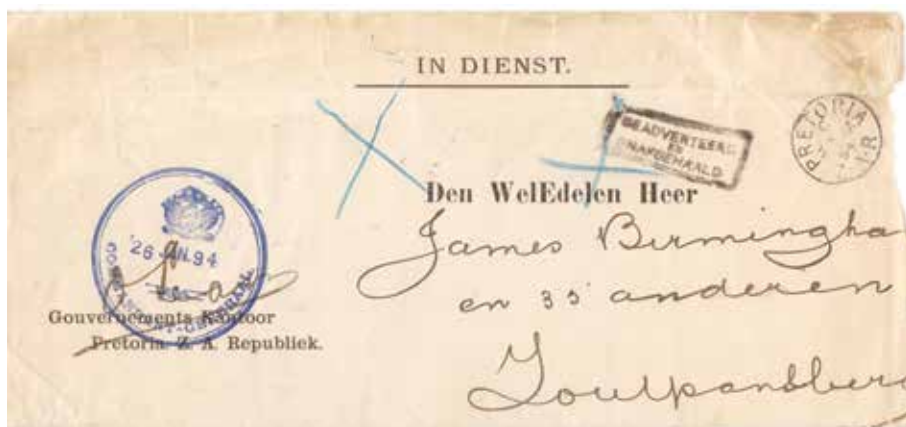 IN DIENST.
GEADVERTEERD
EN
NIET AFGEHAALD
PRETORIA
Z.A.R.
Den WelEdelen Heer
James Birmingha
en 35 anderen
Zoutpansberg
26 JAN. 94
COMMANDANT-GENERAAL
Gouvernements Kantoor
Pretoria Z. A. Republiek.